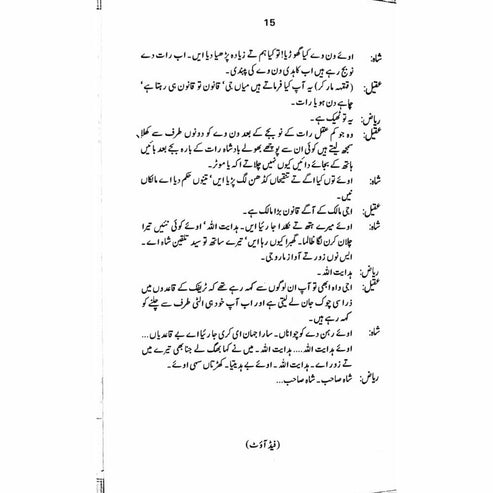 15
شاہ: اوئے ون وے کیا گھوڑیا! تو کیا ہم تے زیادہ پڑھیا دیا ایں۔ اب رات دے
نو بج رہے ہیں اب کاہدی ون وے کی پابندی۔
عقیل: (قہقہہ مار کر) یہ آپ کیا فرماتے ہیں میاں جی' قانون تو قانون ہی رہتا ہے'
چاہے دن ہو یا رات۔
ریاض: یہ تو ٹھیک ہے۔
عقیل: وہ جو کم عقل رات کے نو بجے کے بعد ون وے کو دونوں طرف سے کھلا
سمجھ لیتے ہیں کوئی ان سے پوچھے بھولے بادشاہ رات کے بارہ بجے بعد بائیں
ہاتھ کے بجائے دائیں کیوں نہیں چلاتے اکہ یا موٹر۔
شاہ: اوئے توں کیا اگے تے کڈھن لگ پڑیا ایں' تینوں حکم دیا اے مالکاں
نیں۔
عقیل: اجی مالک کے آگے قانون بڑا مالک ہے۔
شاہ: اوئے میرے ہتھ تے نکلدا جا رئیا ایں۔ ہدایت اللہ' اوئے کوئی نئیں تیرا
چلان کرن لگا ظالما۔ گھبرا کیوں رہا ایں' تیرے ساتھ تو سید تلقین شاہ اے۔
ایس نوں زور تے آواز مارو جی۔
ریاض: ہدایت اللہ۔
عقیل: اجی واہ ابھی تو آپ ان لوگوں سے کہہ رہے تھے کہ ٹریفک کے قاعدوں میں
ذرا سی چوک جان لے لیتی ہے اور اب آپ خود ہی الٹی طرف سے چلنے کو
کہہ رہے ہیں۔
شاہ: اوئے رہن دے کو چواناں۔ سارا جہان ای کری جا رئیا اے بے قاعدیاں...
اوئے ہدایت اللہ.... ہدایت اللہ۔ میں نے کہا بھگ لے جنا بھی تیرے میں
تے زور اے۔ ہدایت اللہ۔ اوئے بے ہدیتیا۔ کھڑ تاں سہی اوئے۔
ریاض: شاہ صاحب۔ شاہ صاحب...
(فیڈ آؤٹ)